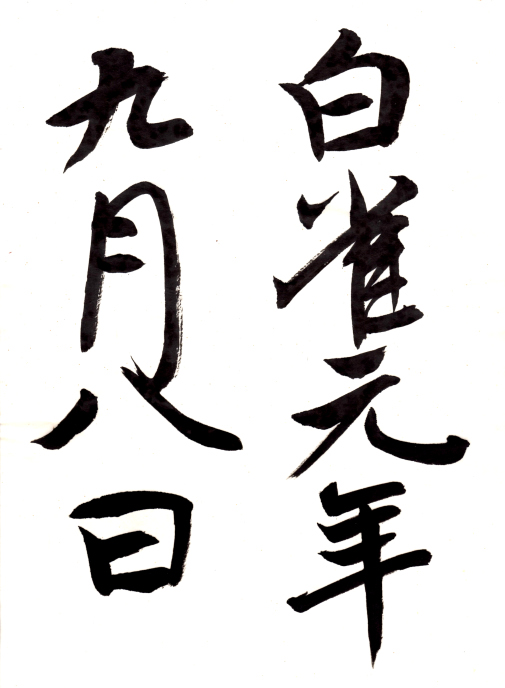 白雀元年
九月八日